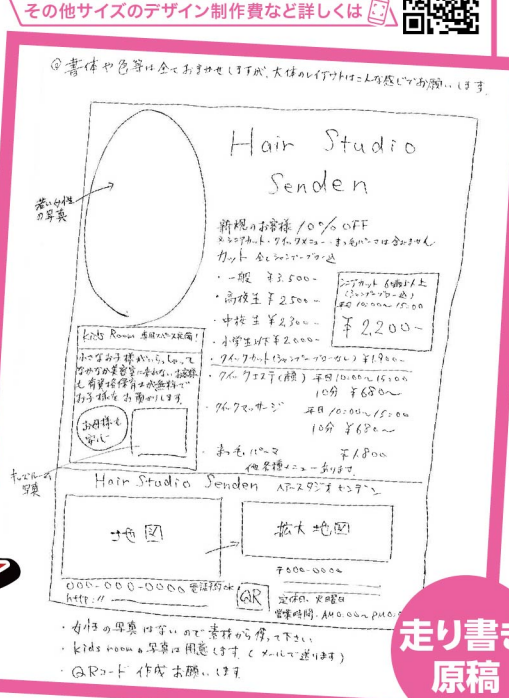 その他サイズのデザイン制作費など詳しくは
@書体や色等は全ておまかせしますが、大体のレイアウトはこんな感じでお願いします
若い女性
の写真
Hair Studio
Senden
新規のお客様 10% OFF
※シニアカット・クイックメニュー・まつ毛パーマは含みません
カット 全てシャンプーブロー込
・一般 ¥3,500-
・高校生 ¥2500-
・中校生 ¥2,300-
・小学生以下 ¥2000-
シニアカット 60歳以上
(シャンプーブロー込)
平日10:00〜15:00
¥2,200-
・クイックカット(シャンプーブローなし) ¥1,900-
・クイックエステ(顔) 平日10:00〜15:00
10分 ¥680〜
・クイックマッサージ 平日10:00〜15:00
10分 ¥680〜
・まつ毛パーマ ¥1,800
他各種メニューあります
Kids Room 専用スペース完備!
小さなお子様がいらっしゃって
なかなか美容室に来れないお客様
も有資格保育士が無料で
お子様をお預かりします
お母様も
安心
キッズルーム
写真
Hair Studio Senden ヘアースタジオセンデン
地図
拡大地図
〒000-0000
000-000-0000 電話予約OK
http://
QR
定休日 火曜日
営業時間
・女性の写真はないので素材から使って下さい
・Kids roomの写真は用意します(メールで送ります)
・QRコード作成お願いします
走り書き
原稿